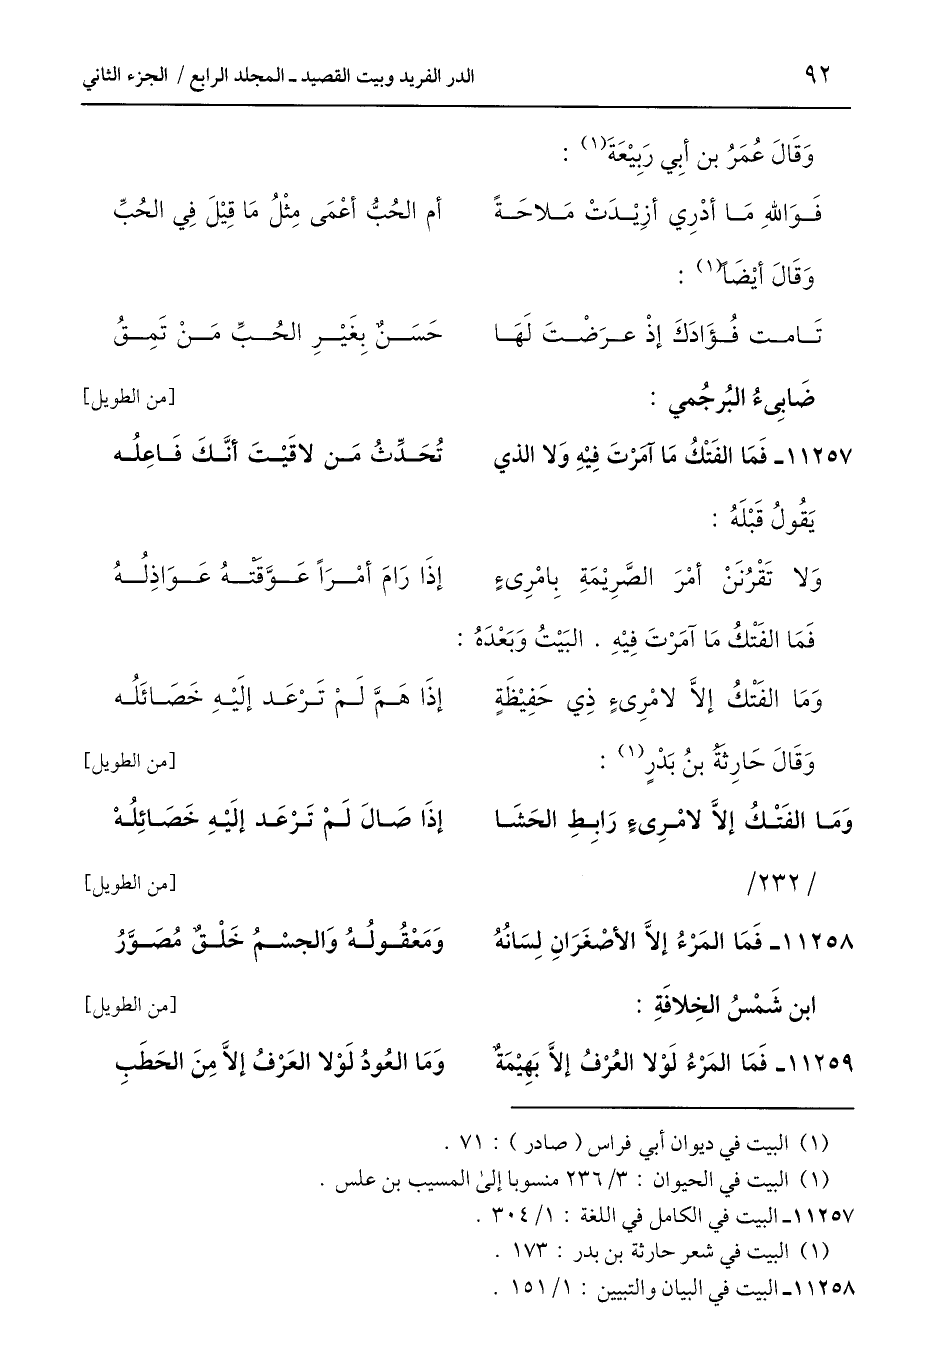 ٩٢ الدر الفريد وبيت القصيد ـ المجلد الرابع / الجزء الثاني
وَقَالَ عُمَرُ بن أبي رَبِيْعَةَ(١) :
فَوَاللهِ مَا أدْرِي أزِيْدَتْ مَلاحَةً أم الحُبُّ أعْمَى مِثْلُ مَا قِيْلَ فِي الحُبِّ
وَقَالَ أيْضَاً(١) :
تَامت فُؤَادَكَ إذْ عرَضْتَ لَهَا حَسَنٌ بِغَيْرِ الحُبِّ مَنْ تَمِقُ
ضَابِىءُ البُرجُمي : [من الطويل]
١١٢٥٧ـ فَمَا الفَتْكُ مَا آمَرْتَ فِيْهِ وَلا الذي تُحَدِّثُ مَن لاقَيْتَ أنَّكَ فَاعِلُه
يَقُولُ قَبْلَهُ :
وَلا تَقْرُنَنْ أمْرَ الصَّرِيْمَةِ بِامْرِىءٍ إذَا رَامَ أمْرَاً عَوَّقَتْهُ عَوَاذِلُهُ
فَمَا الفَتْكُ مَا آمَرْتَ فِيْهِ . البَيْتُ وَبَعْدَهُ :
وَمَا الفَتْكُ إلاَّ لامْرِىءٍ ذِي حَفِيْظَةٍ إذَا هَمَّ لَمْ تَرْعَد إلَيْهِ خَصَائلُه
وَقَالَ حَارِثَةُ بنُ بَدْرٍ(١) : [من الطويل]
وَمَا الفَتْكُ إلاَّ لامْرِىءٍ رَابِطِ الحَشَا إذَا صَالَ لَمْ تَرْعَد إلَيْهِ خَصَائِلُهْ
/ ٢٣٢/ [من الطويل]
١١٢٥٨ـ فَمَا المَرْءُ إلاَّ الأصْغَرَانِ لِسَانُهُ وَمَعْقُولُهُ وَالجسْمُ خَلْقٌ مُصَوَّرُ
ابن شَمْسُ الخِلافَةِ : [من الطويل]
١١٢٥٩ـ فَمَا المَرْءُ لَوْلا العُرْفُ إلاَّ بَهِيْمَةٌ وَمَا العُودُ لَوْلا العَرْفُ إلاَّ مِنَ الحَطَبِ
(١) البيت في ديوان أبي فراس ( صادر ) : ٧١ .
(١) البيت في الحيوان : ٣/ ٢٣٦ منسوبا إلىٰ المسيب بن علس .
١١٢٥٧ـ البيت في الكامل في اللغة : ١/ ٣٠٤ .
(١) البيت في شعر حارثة بن بدر : ١٧٣ .
١١٢٥٨ـ البيت في البيان والتبيين : ١/ ١٥١ .